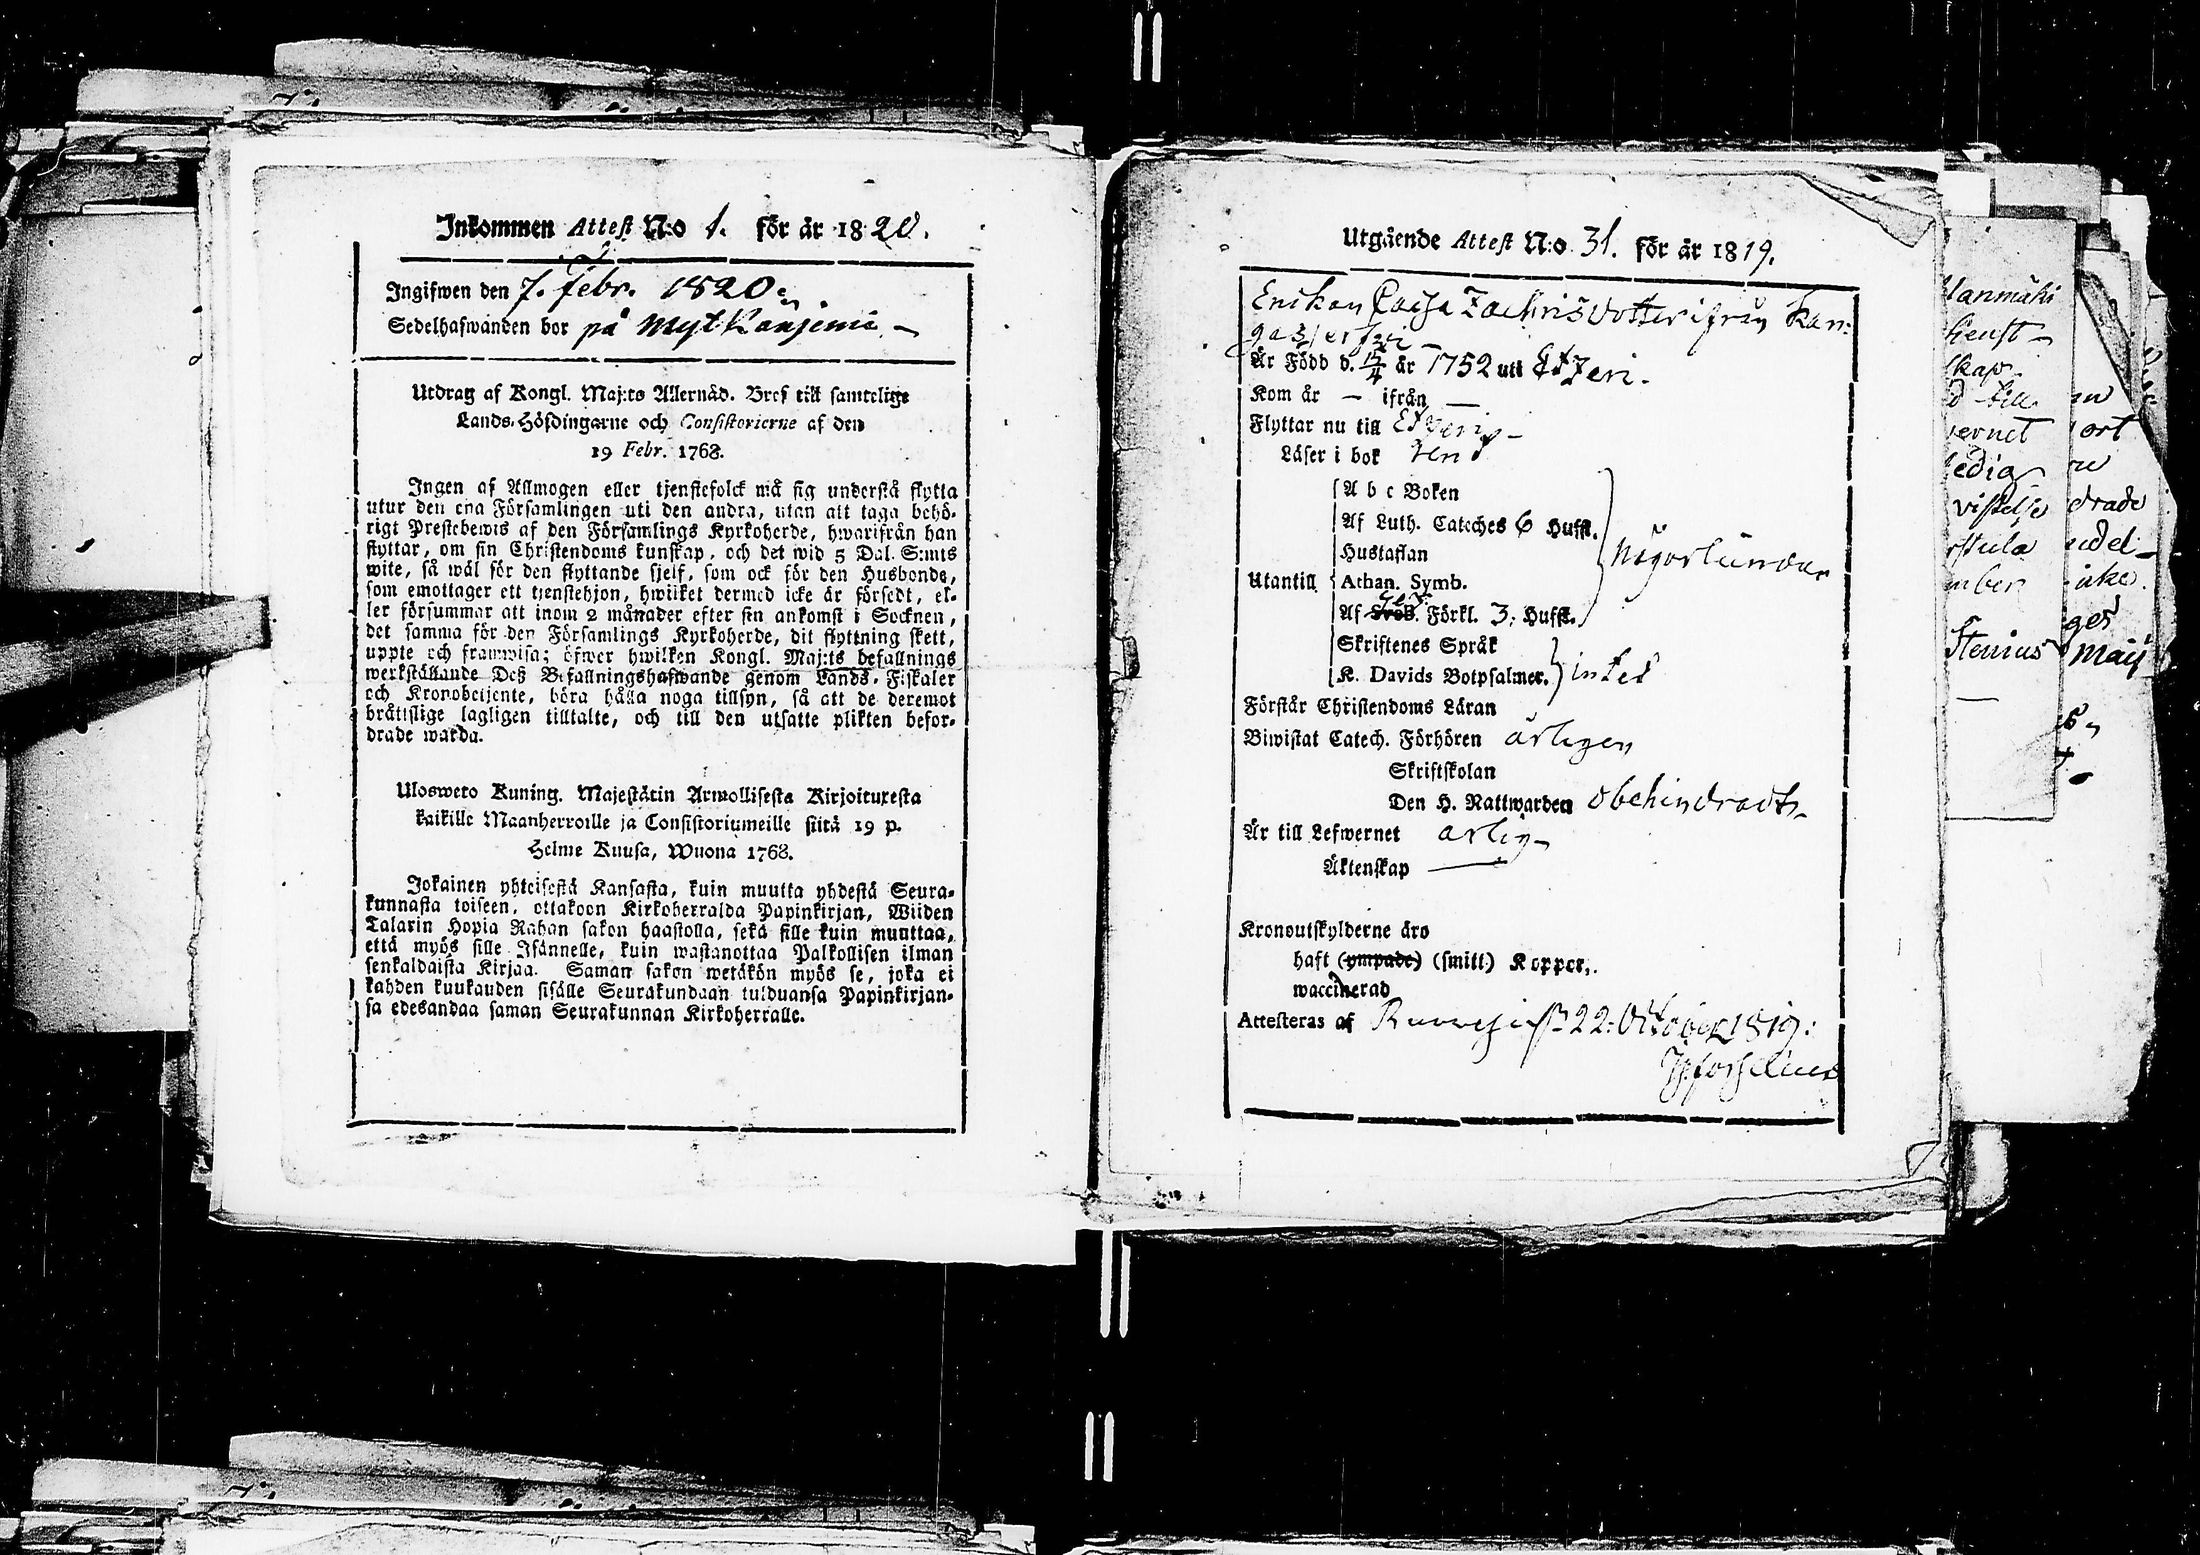 Inkommen Attest N:o 1. för år 1820.
Ingifwen den 7. febr. 1820.
Sedelhafwanden bor på
Utdrag af Kongl. Maj:ts Allernåd. Bref till samtelige
Lands-Höfdingarne och Consistorierne af den
19 Febr. 1768.
Ingen af Allmogen eller tjenstefolck må sig understå flytta
utur den ena Församlingen uti den andra, utan att taga behö-
rigt Prestebewis af den Församlings Kyrkoherde, hwarifrån han
flyttar, om sin Christendoms kunskap, och det wid 5 Dal. S:mts
wite, så wäl för den flyttande sjelf, som ock för den Husbonde,
som emottager ett tjenstehjon, hwilket dermed icke är försedt, el-
ler försummar att inom 2 månader efter sin ankomst i Socknen,
det samma för den Församlings Kyrkoherde, dit flyttning skett,
uppte och framwisa; öfwer hwilken Kongl. Maj:ts befallnings
werkställande Deß Befallningshafwande genom Lands-Fiskaler
och Kronobetjente, böra hålla noga tillsyn, så att de deremot
bråttslige lagligen tilltalte, och till den utsatte plikten befor-
drade warda.
Ulosweto Kuning. Majestätin Armollisesta Kirjoituxesta
kaikille Maanherroille ja Consistoriumeille siitä 19 p.
Helme Kuusa, Wuona 1768.
Jokainen yhteisestä Kansasta, kuin muutta yhdestä Seura-
kunnasta toiseen, ottakoon Kirkoherralda Papinkirjan, Wiiden
Talarin Hopia Rahan sakon haastolla, sekä sille kuin muuttaa,
että myös sille Isännelle, kuin wastanottaa Palkollisen ilman
senkaldaista Kirjaa. Saman sakon wetäkön myös se, joka ei
kahden kuukauden sisälle Seurakundaan tulduansa Papinkirjan-
sa edesandaa saman Seurakunnan Kirkoherralle.
Utgående Attest N:o 31. för år 1819.
Enckan Caisa Zachrisdotter ifrån Kan-
gasjerfvi
Är Född d. 12/4 år 1752 uti Etzeri.
Kom år — ifrån —
Flyttar nu till Etzeri
Läser i bok
A b c Boken
Af Luth. Cateches 6 Hufst.
Hustaflan
Någorlunda
Utantill Athan. Symb.
Af Sveb. Förkl. 3. Hufst.
Skriftenes Språk
K. Davids Botpsalmer. intet
Förstår Christendoms Läran
Biwistat Catech. Förhören årligen
Skriftskolan
Den H. Nattwarden obehindradt
Är till Lefwernet ärlig
Äktenskap —
Kronoutskylderne äro
haft (ympade) (smitt) Koppor.
waccinerad
Attesteras af Ruovesi 22: October 1819:
lanmäki
tienst
skap
till
vernet
ledig
Stenius
ort
drade
maij